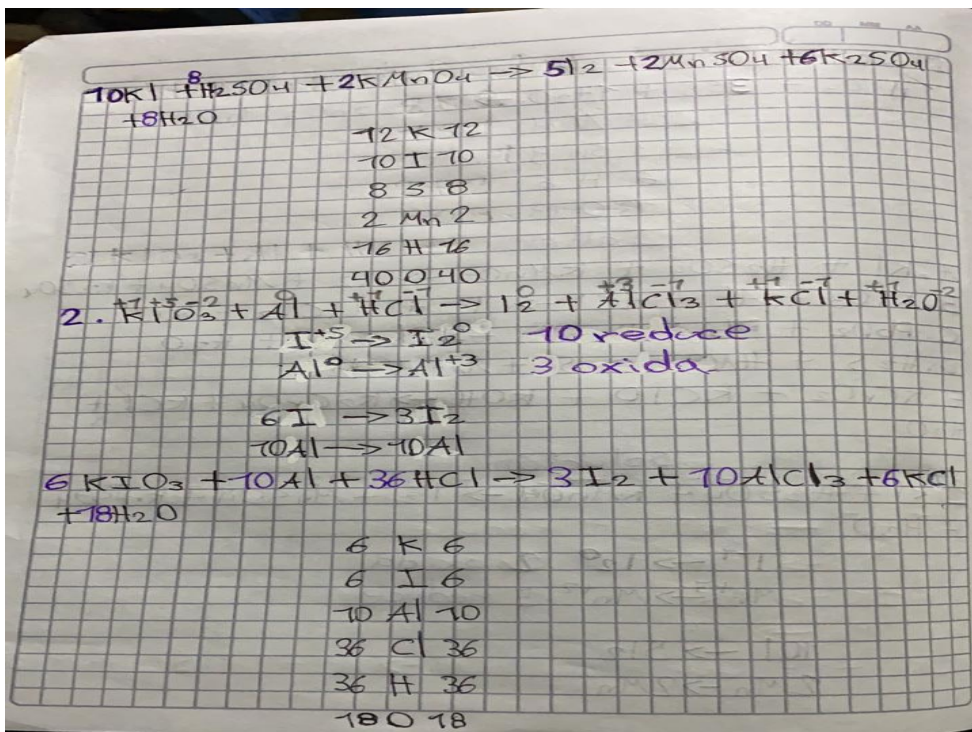 10KI + 8H2SO4 + 2KMnO4 → 5I2 + 2MnSO4 + 6K2SO4
+8H2O
12 K 12
10 I 10
8 S 8
2 Mn 2
16 H 16
40 O 40
2. K⁺¹I⁺⁵O3⁻² + Al⁰ + H⁺¹Cl⁻¹ → I2⁰ + Al⁺³Cl3⁻¹ + K⁺¹Cl⁻¹ + H2⁺¹O⁻²
I⁺⁵ → I2⁰ 10 reduce
Al⁰ → Al⁺³ 3 oxida
6I → 3I2
10Al → 10Al
6 KIO3 + 10Al + 36HCl → 3I2 + 10AlCl3 + 6KCl
+18H2O
6 K 6
6 I 6
10 Al 10
36 Cl 36
36 H 36
18 O 18